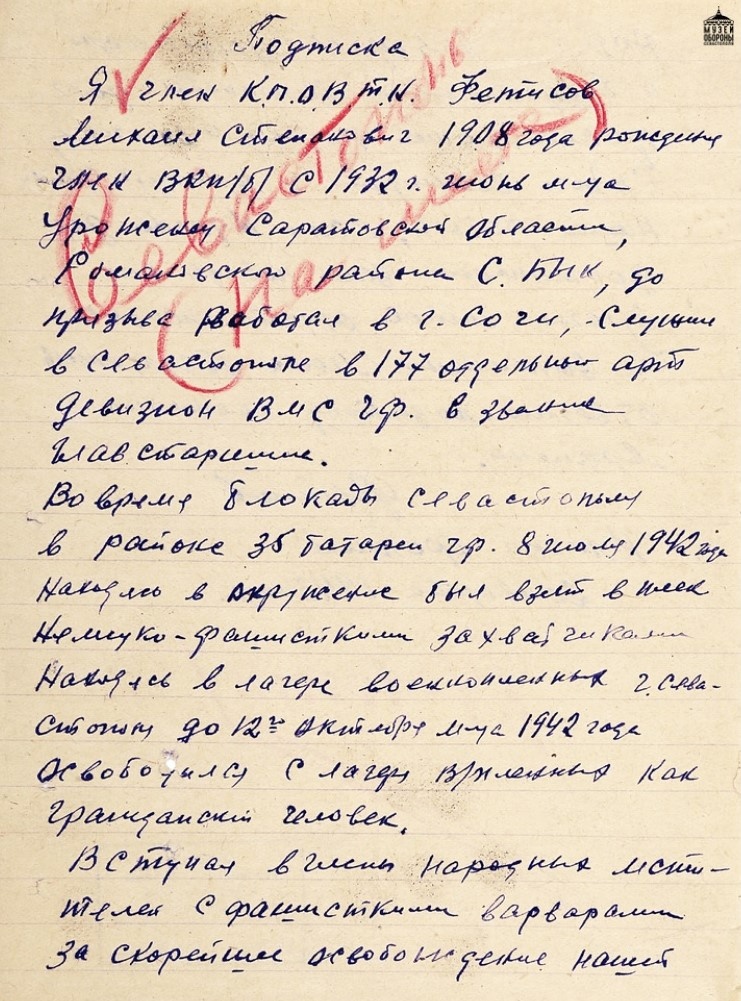 МУЗЕЙ
ОБОРОНЫ
СЕВАСТОПОЛЯ
Подписка
Я член К.П.О.В Т.Н. Фетисов
Михаил Степанович 1908 года рождения
член ВКП/б/ с 1932 г. июнь м-ца
Уроженец Саратовской области,
Романовского района С. Бык, до
призыва работал в г. Сочи, Служил
в Севастополе в 177 отдельном арт
девизион ВМС ЧФ. в звание
главстаршине.
Во время блокады Севастополя
в районе 35 батареи ЧФ. 8 июля 1942 года
Находясь в окружение был взят в плен
Немецко-фашисткими захватчиками
Находясь в лагере военнопленных г. Сева-
стополя до 12го октября м-ца 1942 года
освободился с лагеря в/пленных как
гражданский человек.
Вступая в члены народных мсти-
телей с фашисткими варварами
за скорейшие освобождение нашей
Севастополь